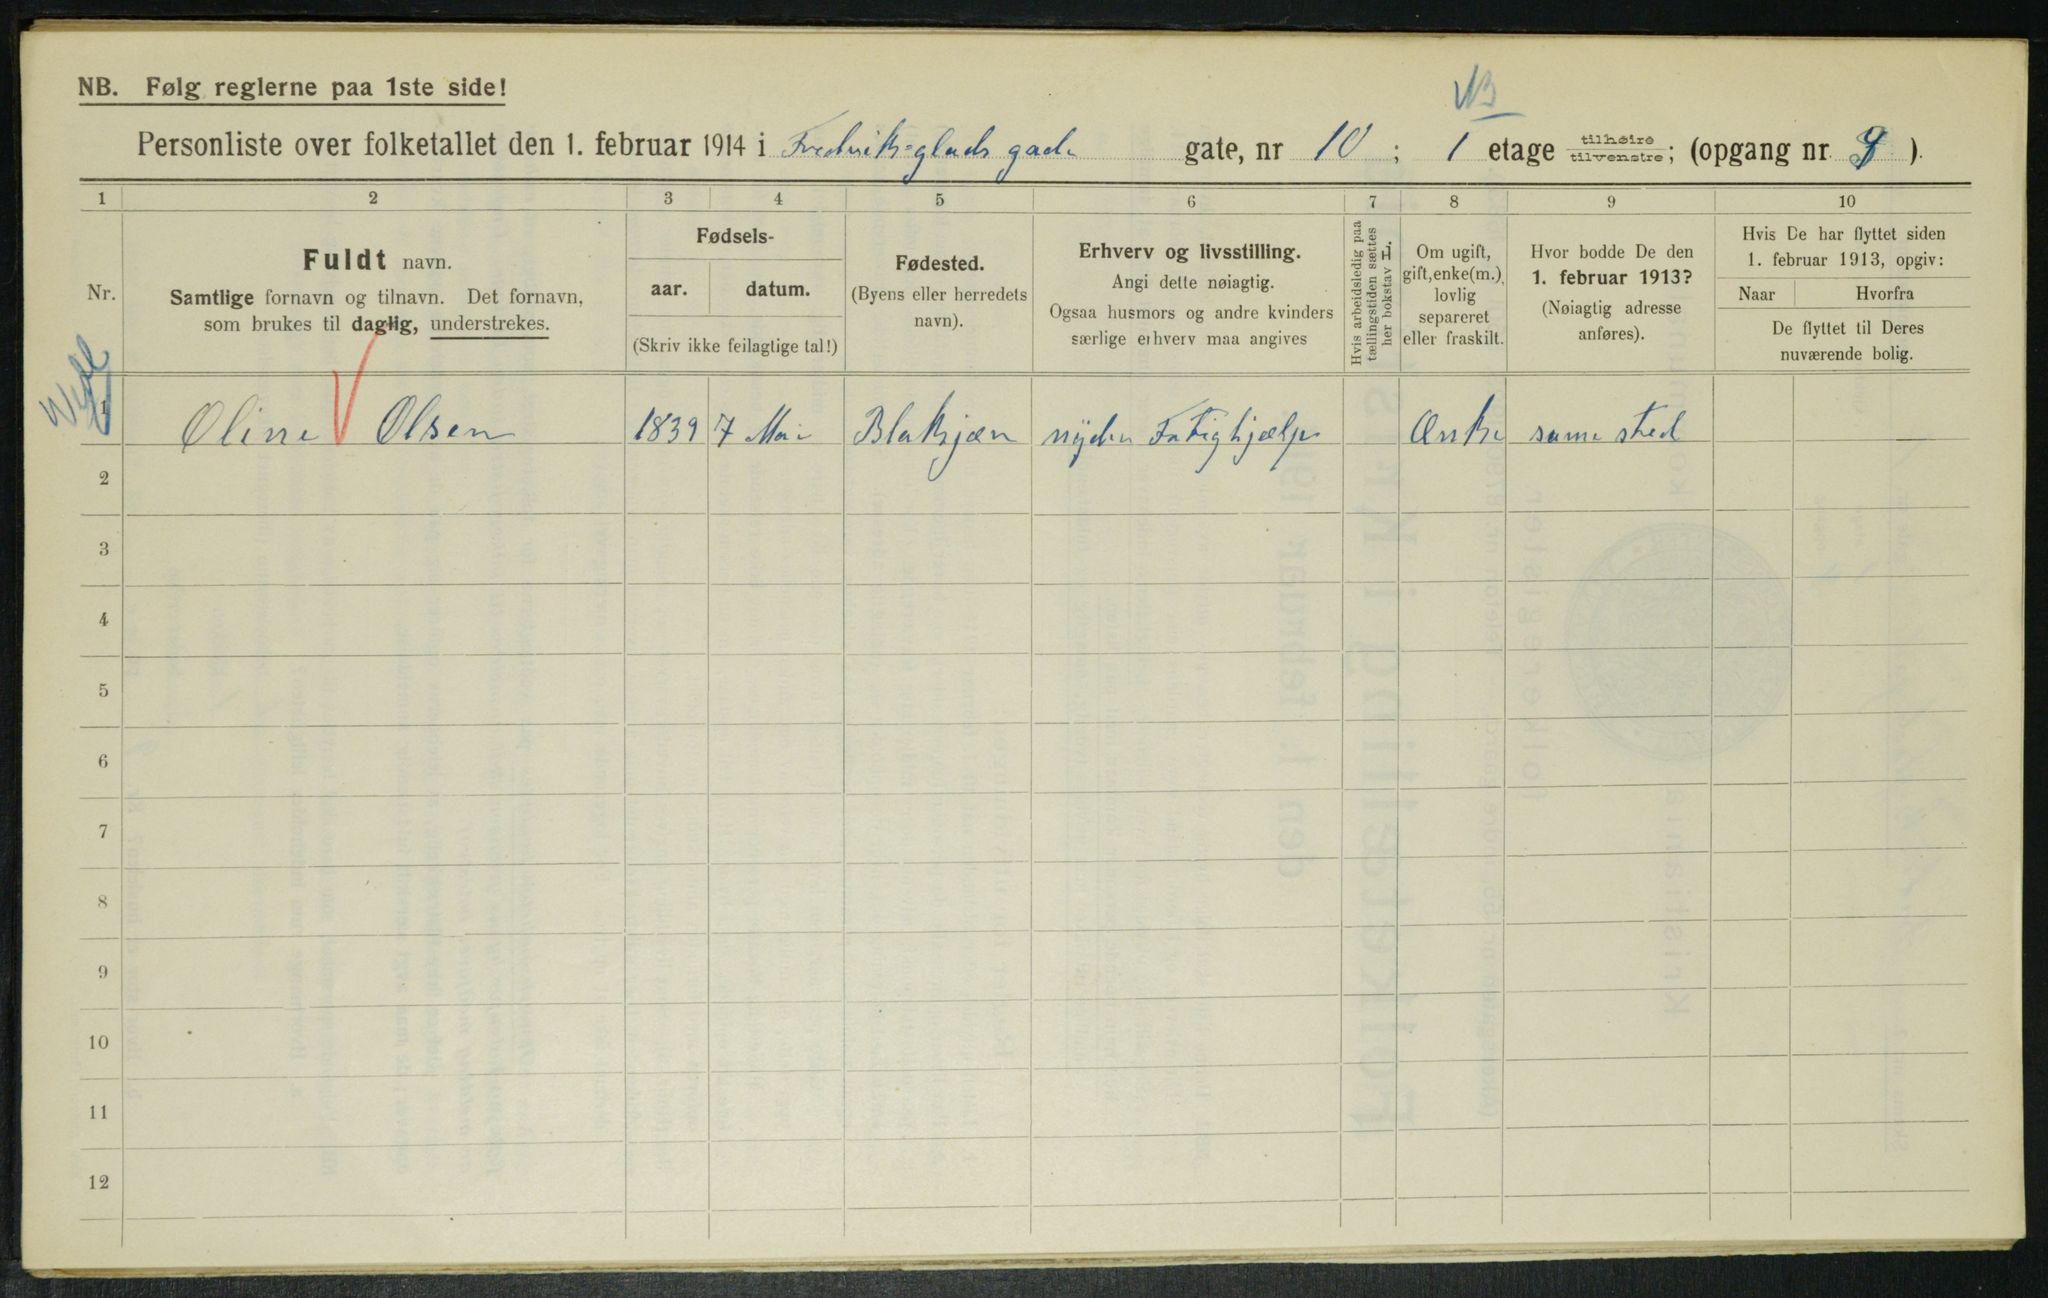 NB. Følg reglerne paa 1ste side!
NB
Personliste over folketallet den 1. februar 1914 i Fredrik-glads gade gate, nr 10 ; 1 etage tilhøire tilvenstre; (opgang nr ).
1 2 3 4 5 6 7 8 9 10
Nr.
Fuldt navn.
Samtlige fornavn og tilnavn. Det fornavn,
som brukes til daglig, understrekes.
Fødsels-
aar. datum.
(Skriv ikke feilagtige tal!)
Fødested.
(Byens eller herredets
navn).
Erhverv og livsstilling.
Angi dette nøiagtig.
Ogsaa husmors og andre kvinders
særlige erhverv maa angives
Hvis arbeidsledig paa
tællingstiden sættes
her bokstav L.
Om ugift,
gift, enke(m.),
lovlig
separeret
eller fraskilt.
Hvor bodde De den
1. februar 1913?
(Nøiagtig adresse
anføres).
Hvis De har flyttet siden
1. februar 1913, opgiv:
Naar Hvorfra
De flyttet til Deres
nuværende bolig.
1 Oline Olsen 1839 7 Mai Blakjæn nyder Fatighjælp Enke samme sted
2
3
4
5
6
7
8
9
10
11
12